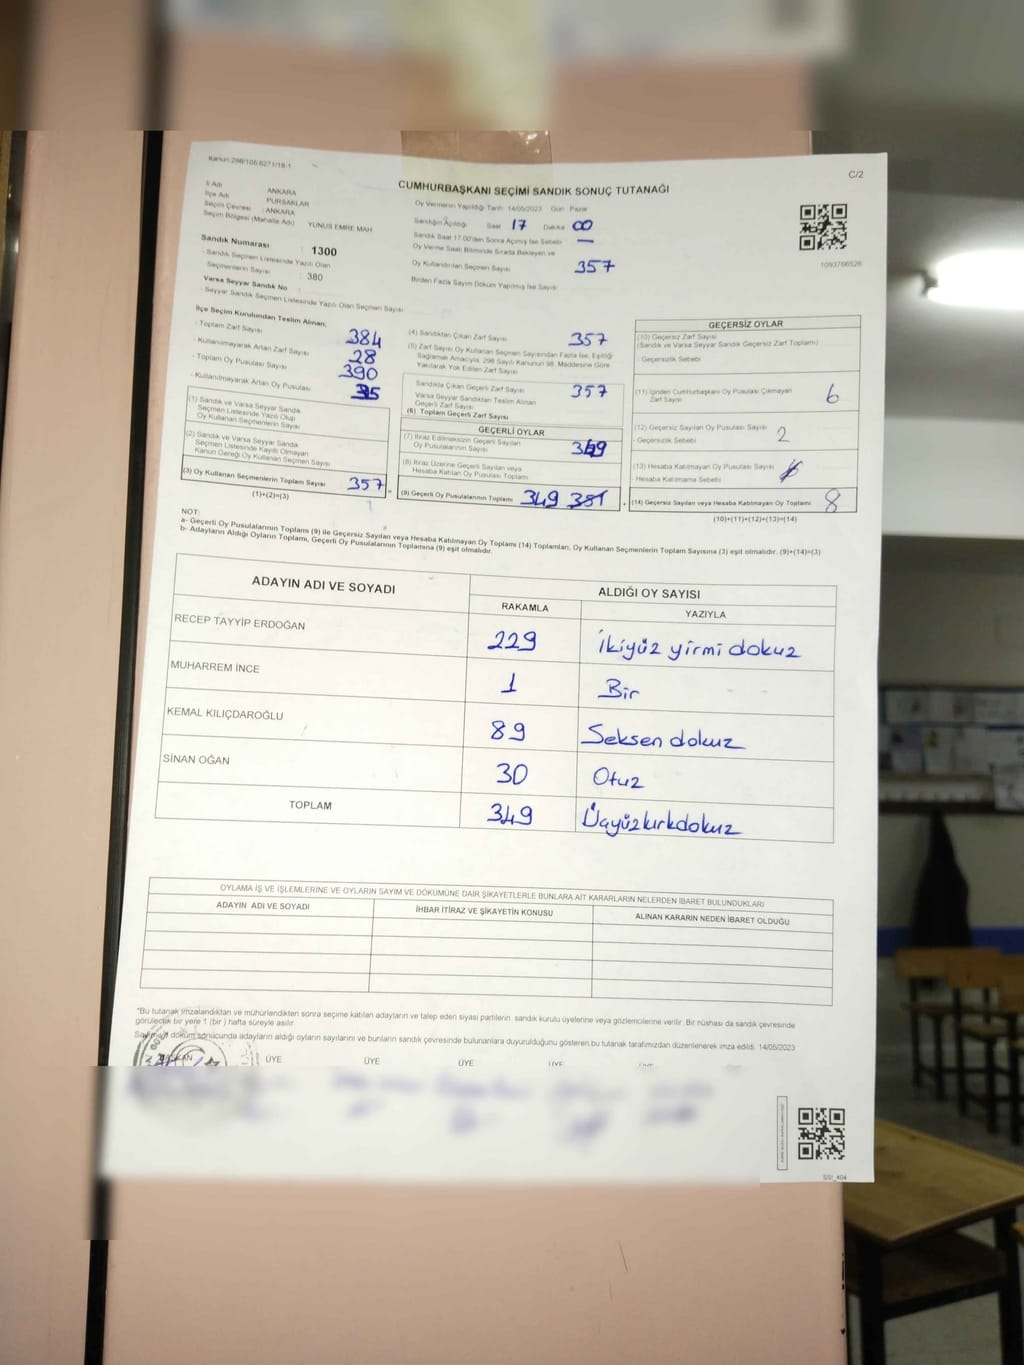 Kanun:298/105,6271/18-1
C/2
CUMHURBAŞKANI SEÇİMİ SANDIK SONUÇ TUTANAĞI
İl Adı ANKARA
İlçe Adı PURSAKLAR
Seçim Çevresi : ANKARA
Seçim Bölgesi (Mahalle Adı) YUNUS EMRE MAH
Sandık Numarası : 1300
- Sandık Seçmen Listesinde Yazılı Olan
Seçmenlerin Sayısı : 380
Varsa Seyyar Sandık No
- Seyyar Sandık Seçmen Listesinde Yazılı Olan Seçmen Sayısı
Oy Vermenin Yapıldığı Tarih 14/05/2023 Gün Pazar
Sandığın Açıldığı Saat 17 Dakika 00
Sandık Saat 17.00'den Sonra Açılmış İse Sebebi —
Oy Verme Saati Bitiminde Sırada Bekleyen ve
Oy Kullandırılan Seçmen Sayısı 357
Birden Fazla Sayım Döküm Yapılmış İse Sayısı
1093766526
İlçe Seçim Kurulundan Teslim Alınan;
- Toplam Zarf Sayısı 384
- Kullanılmayarak Artan Zarf Sayısı 28
- Toplam Oy Pusulası Sayısı 390
- Kullanılmayarak Artan Oy Pusulası 35
(1) Sandık ve Varsa Seyyar Sandık
Seçmen Listesinde Yazılı Olup
Oy Kullanan Seçmenlerin Sayısı
(2) Sandık ve Varsa Seyyar Sandık
Seçmen Listesinde Kayıtlı Olmayan
Kanun Gereği Oy Kullanan Seçmen Sayısı
(3) Oy Kullanan Seçmenlerin Toplam Sayısı 357
(1)+(2)=(3)
(4) Sandıktan Çıkan Zarf Sayısı 357
(5) Zarf Sayısı Oy Kullanan Seçmen Sayısından Fazla İse, Eşitliği
Sağlamak Amacıyla, 298 Sayılı Kanunun 98. Maddesine Göre
Yakılarak Yok Edilen Zarf Sayısı
Sandıkta Çıkan Geçerli Zarf Sayısı 357
Varsa Seyyar Sandıktan Teslim Alınan
Geçerli Zarf Sayısı
(6) Toplam Geçerli Zarf Sayısı
GEÇERLİ OYLAR
(7) İtiraz Edilmeksizin Geçerli Sayılan
Oy Pusulalarının Sayısı 349
(8) İtiraz Üzerine Geçerli Sayılan veya
Hesaba Katılan Oy Pusulası Toplamı
(9) Geçerli Oy Pusulalarının Toplamı 349 351
GEÇERSİZ OYLAR
(10) Geçersiz Zarf Sayısı
(Sandık ve Varsa Seyyar Sandık Geçersiz Zarf Toplamı)
- Geçersizlik Sebebi
(11) İçinden Cumhurbaşkanı Oy Pusulası Çıkmayan
Zarf Sayısı 6
(12) Geçersiz Sayılan Oy Pusulası Sayısı 2
- Geçersizlik Sebebi
(13) Hesaba Katılmayan Oy Pusulası Sayısı
- Hesaba Katılmama Sebebi
(14) Geçersiz Sayılan veya Hesaba Katılmayan Oy Toplamı 8
(10)+(11)+(12)+(13)=(14)
NOT:
a- Geçerli Oy Pusulalarının Toplamı (9) ile Geçersiz Sayılan veya Hesaba Katılmayan Oy Toplamı (14) Toplamları, Oy Kullanan Seçmenlerin Toplam Sayısına (3) eşit olmalıdır. (9)+(14)=(3)
b- Adayların Aldığı Oyların Toplamı, Geçerli Oy Pusulalarının Toplamına (9) eşit olmalıdır.
ADAYIN ADI VE SOYADI ALDIĞI OY SAYISI
RAKAMLA YAZIYLA
RECEP TAYYİP ERDOĞAN 229 İkiyüz yirmi dokuz
MUHARREM İNCE 1 Bir
KEMAL KILIÇDAROĞLU 89 Seksen dokuz
SİNAN OĞAN 30 Otuz
TOPLAM 349 Üçyüzkırkdokuz
OYLAMA İŞ VE İŞLEMLERİNE VE OYLARIN SAYIM VE DÖKÜMÜNE DAİR ŞİKAYETLERLE BUNLARA AİT KARARLARIN NELERDEN İBARET BULUNDUKLARI
ADAYIN ADI VE SOYADI İHBAR İTİRAZ VE ŞİKAYETİN KONUSU ALINAN KARARIN NEDEN İBARET OLDUĞU
"Bu tutanak imzalandıktan ve mühürlendikten sonra seçime katılan adayların ve talep eden siyasi partilerin, sandık kurulu üyelerine veya gözlemcilerine verilir. Bir nüshası da sandık çevresinde
görülecek bir yere 1 (bir ) hafta süreyle asılır.
Sayım ve döküm sonucunda adayların aldığı oyların sayılarını ve bunların sandık çevresinde bulunanlara duyurulduğunu gösteren bu tutanak tarafımızdan düzenlenerek imza edildi. 14/05/2023
BAŞKAN ÜYE ÜYE ÜYE ÜYE ÜYE
SSI_404